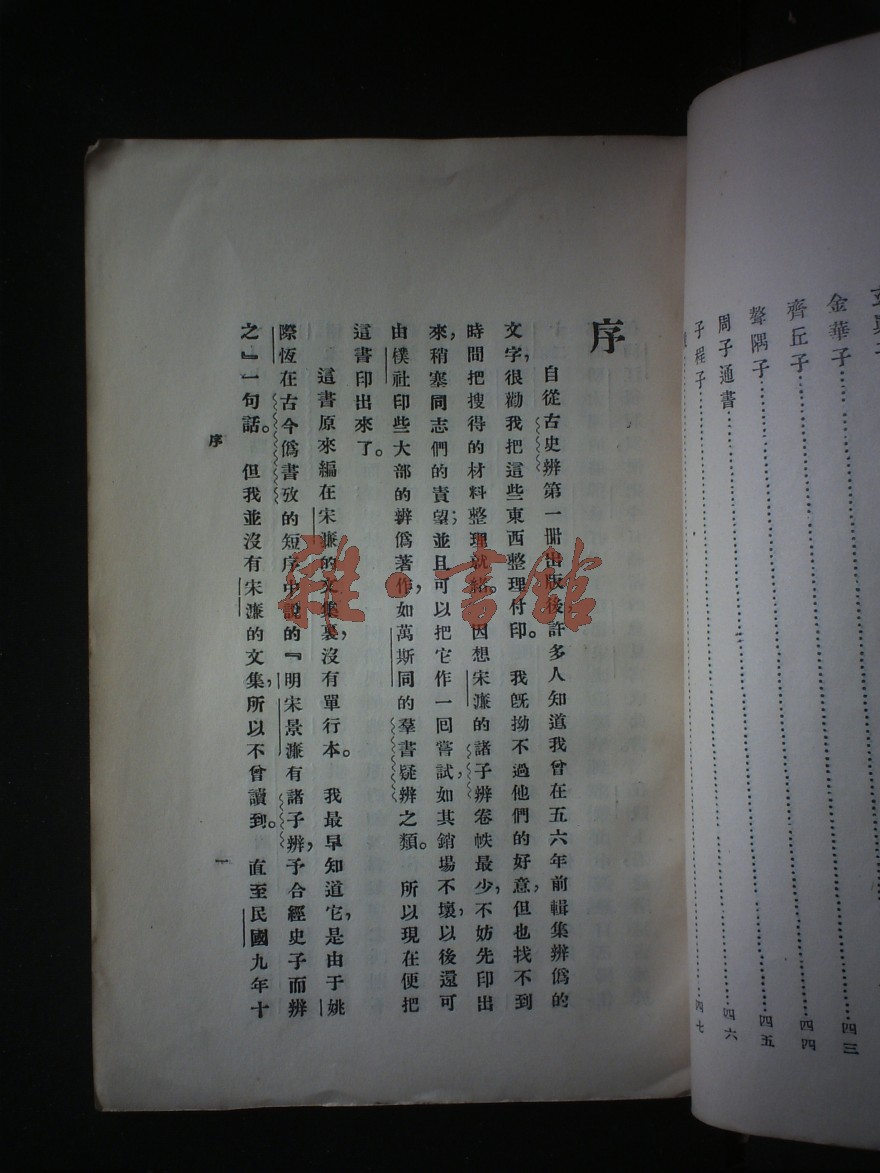 金華子……四三
齊丘子……四四
聱隅子……四五
周子通書……四六
子程子……四七
序
自從古史辨第一册出版後許多人知道我曾在五六年前輯集辨僞的
文字,很勸我把這些東西整理付印。我旣拗不過他們的好意,但也找不到
時間把搜得的材料整理就緒。因想宋濂的諸子辨卷帙最少,不妨先印出
來,稍塞同志們的責望;並且可以把它作一回嘗試,如其銷場不壞,以後還可
由樸社印些大部的辨僞著作,如萬斯同的羣書疑辨之類。所以現在便把
這書印出來了。
這書原來編在宋濂的文集裏,沒有單行本。我最早知道它,是由于姚
際恆在古今僞書攷的短序中說的『明宋景濂有諸子辨,予合經史子而辨
之』一句話。但我並沒有宋濂的文集,所以不曾讀到。直至民國九年十
序
一
雜·書館